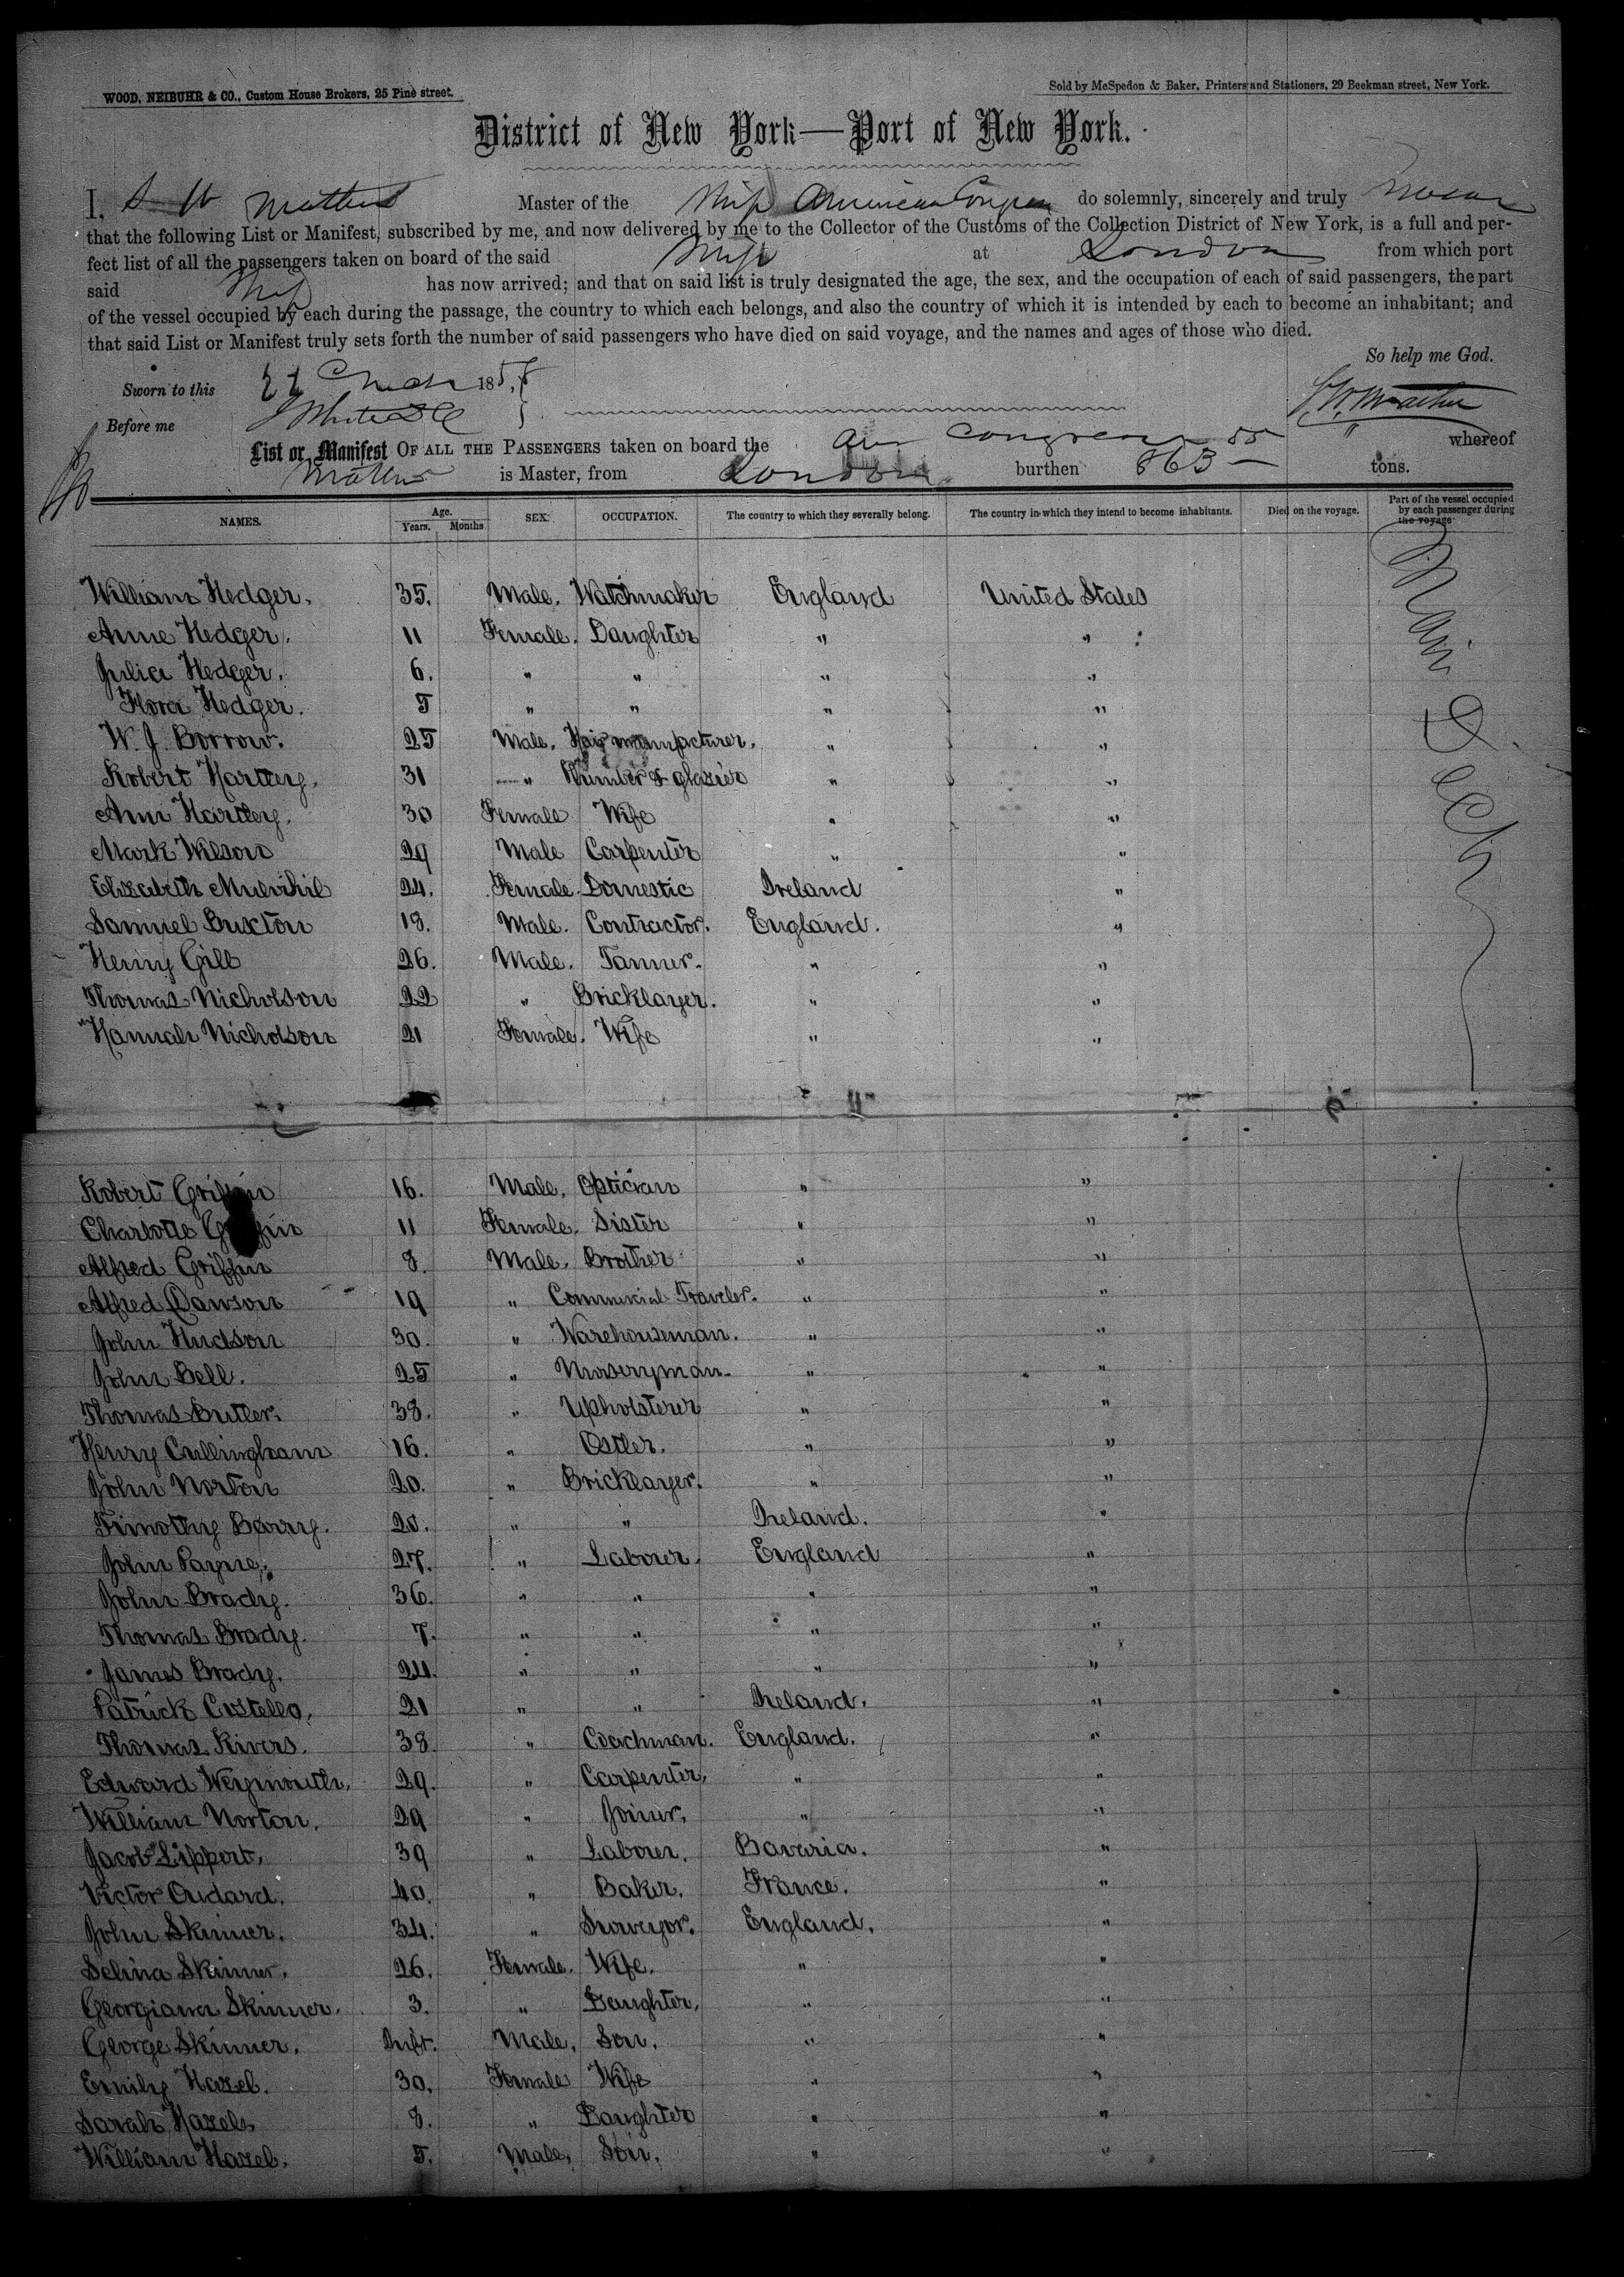 WOOD, NEIBUHR & CO., Custom House Brokers, 25 Pine street.
Sold by McSpedon & Baker, Printers and Stationers, 29 Beekman street, New York.
District of New York—Port of New York.
I, Master of the Ship American Congress do solemnly, sincerely and truly swear
that the following List or Manifest, subscribed by me, and now delivered by me to the Collector of the Customs of the Collection District of New York, is a full and per-
fect list of all the passengers taken on board of the said Ship at London from which port
said Ship has now arrived; and that on said list is truly designated the age, the sex, and the occupation of each of said passengers, the part
of the vessel occupied by each during the passage, the country to which each belongs, and also the country of which it is intended by each to become an inhabitant; and
that said List or Manifest truly sets forth the number of said passengers who have died on said voyage, and the names and ages of those who died.
So help me God.
Sworn to this 185
Before me
List or Manifest OF ALL THE PASSENGERS taken on board the Am Congress whereof
is Master, from London burthen 863 55 tons.
NAMES. Age. Years. Months SEX. OCCUPATION. The country to which they severally belong. The country in which they intend to become inhabitants. Died on the voyage. Part of the vessel occupied by each passenger during the voyage
Main Deck
William Hedger. 35. Male. Watchmaker England United States
Anne Hedger. 11 Female. Daughter " "
Julia Hedger. 6. " " " "
Flora Hedger. 5 " " " "
W. J. Borrow. 25 Male. Hair manufacturer. " "
Robert Hartley. 31 " Plumber & glazier " "
Ann Hartley. 30 Female Wife " "
Mark Wilson 29 Male Carpenter " "
Elizabeth Mulvihil 24. Female. Domestic Ireland "
Samuel Buxton 18. Male. Contractor. England. "
Henry Gill 26. Male. Tanner. " "
Thomas Nicholson 22 " Bricklayer. " "
Hannah Nicholson 21 Female. Wife " "
Robert Griffin 16. Male. Optician " "
Charlotte Griffin 11 Female. Sister " "
Alfred Griffin 8. Male. Brother " "
Alfred Dawson 19 " Commercial Traveler. " "
John Hudson 30. " Warehouseman. " "
John Bell. 25 " Nurseryman. " "
Thomas Butler. 38. " Upholsterer " "
Henry Cullingham 16. " Ostler. " "
John Norton 20. " Bricklayer. " "
Timothy Barry. 20. " " Ireland. "
John Payne. 27. " Labourer. England "
John Brady. 36. " " " "
Thomas Brady. 7. " " " "
James Brady. 24. " " " "
Patrick Costello. 21 " " Ireland. "
Thomas Rivers. 38. " Coachman. England. "
Edward Weymouth. 29. " Carpenter. " "
William Norton. 29 " Joiner. " "
Jacob Lippert. 39 " Labourer. Bavaria. "
Victor Oudard. 40. " Baker. France. "
John Skinner. 34. " Surveyor. England. "
Selina Skinner. 26. Female. Wife. " "
Georgiana Skinner. 3. " Daughter. " "
George Skinner. Inft. Male. Son. " "
Emily Hazel. 30. Female Wife " "
Sarah Hazel 8. " Daughter " "
William Hazel. 5. Male. Son. " "